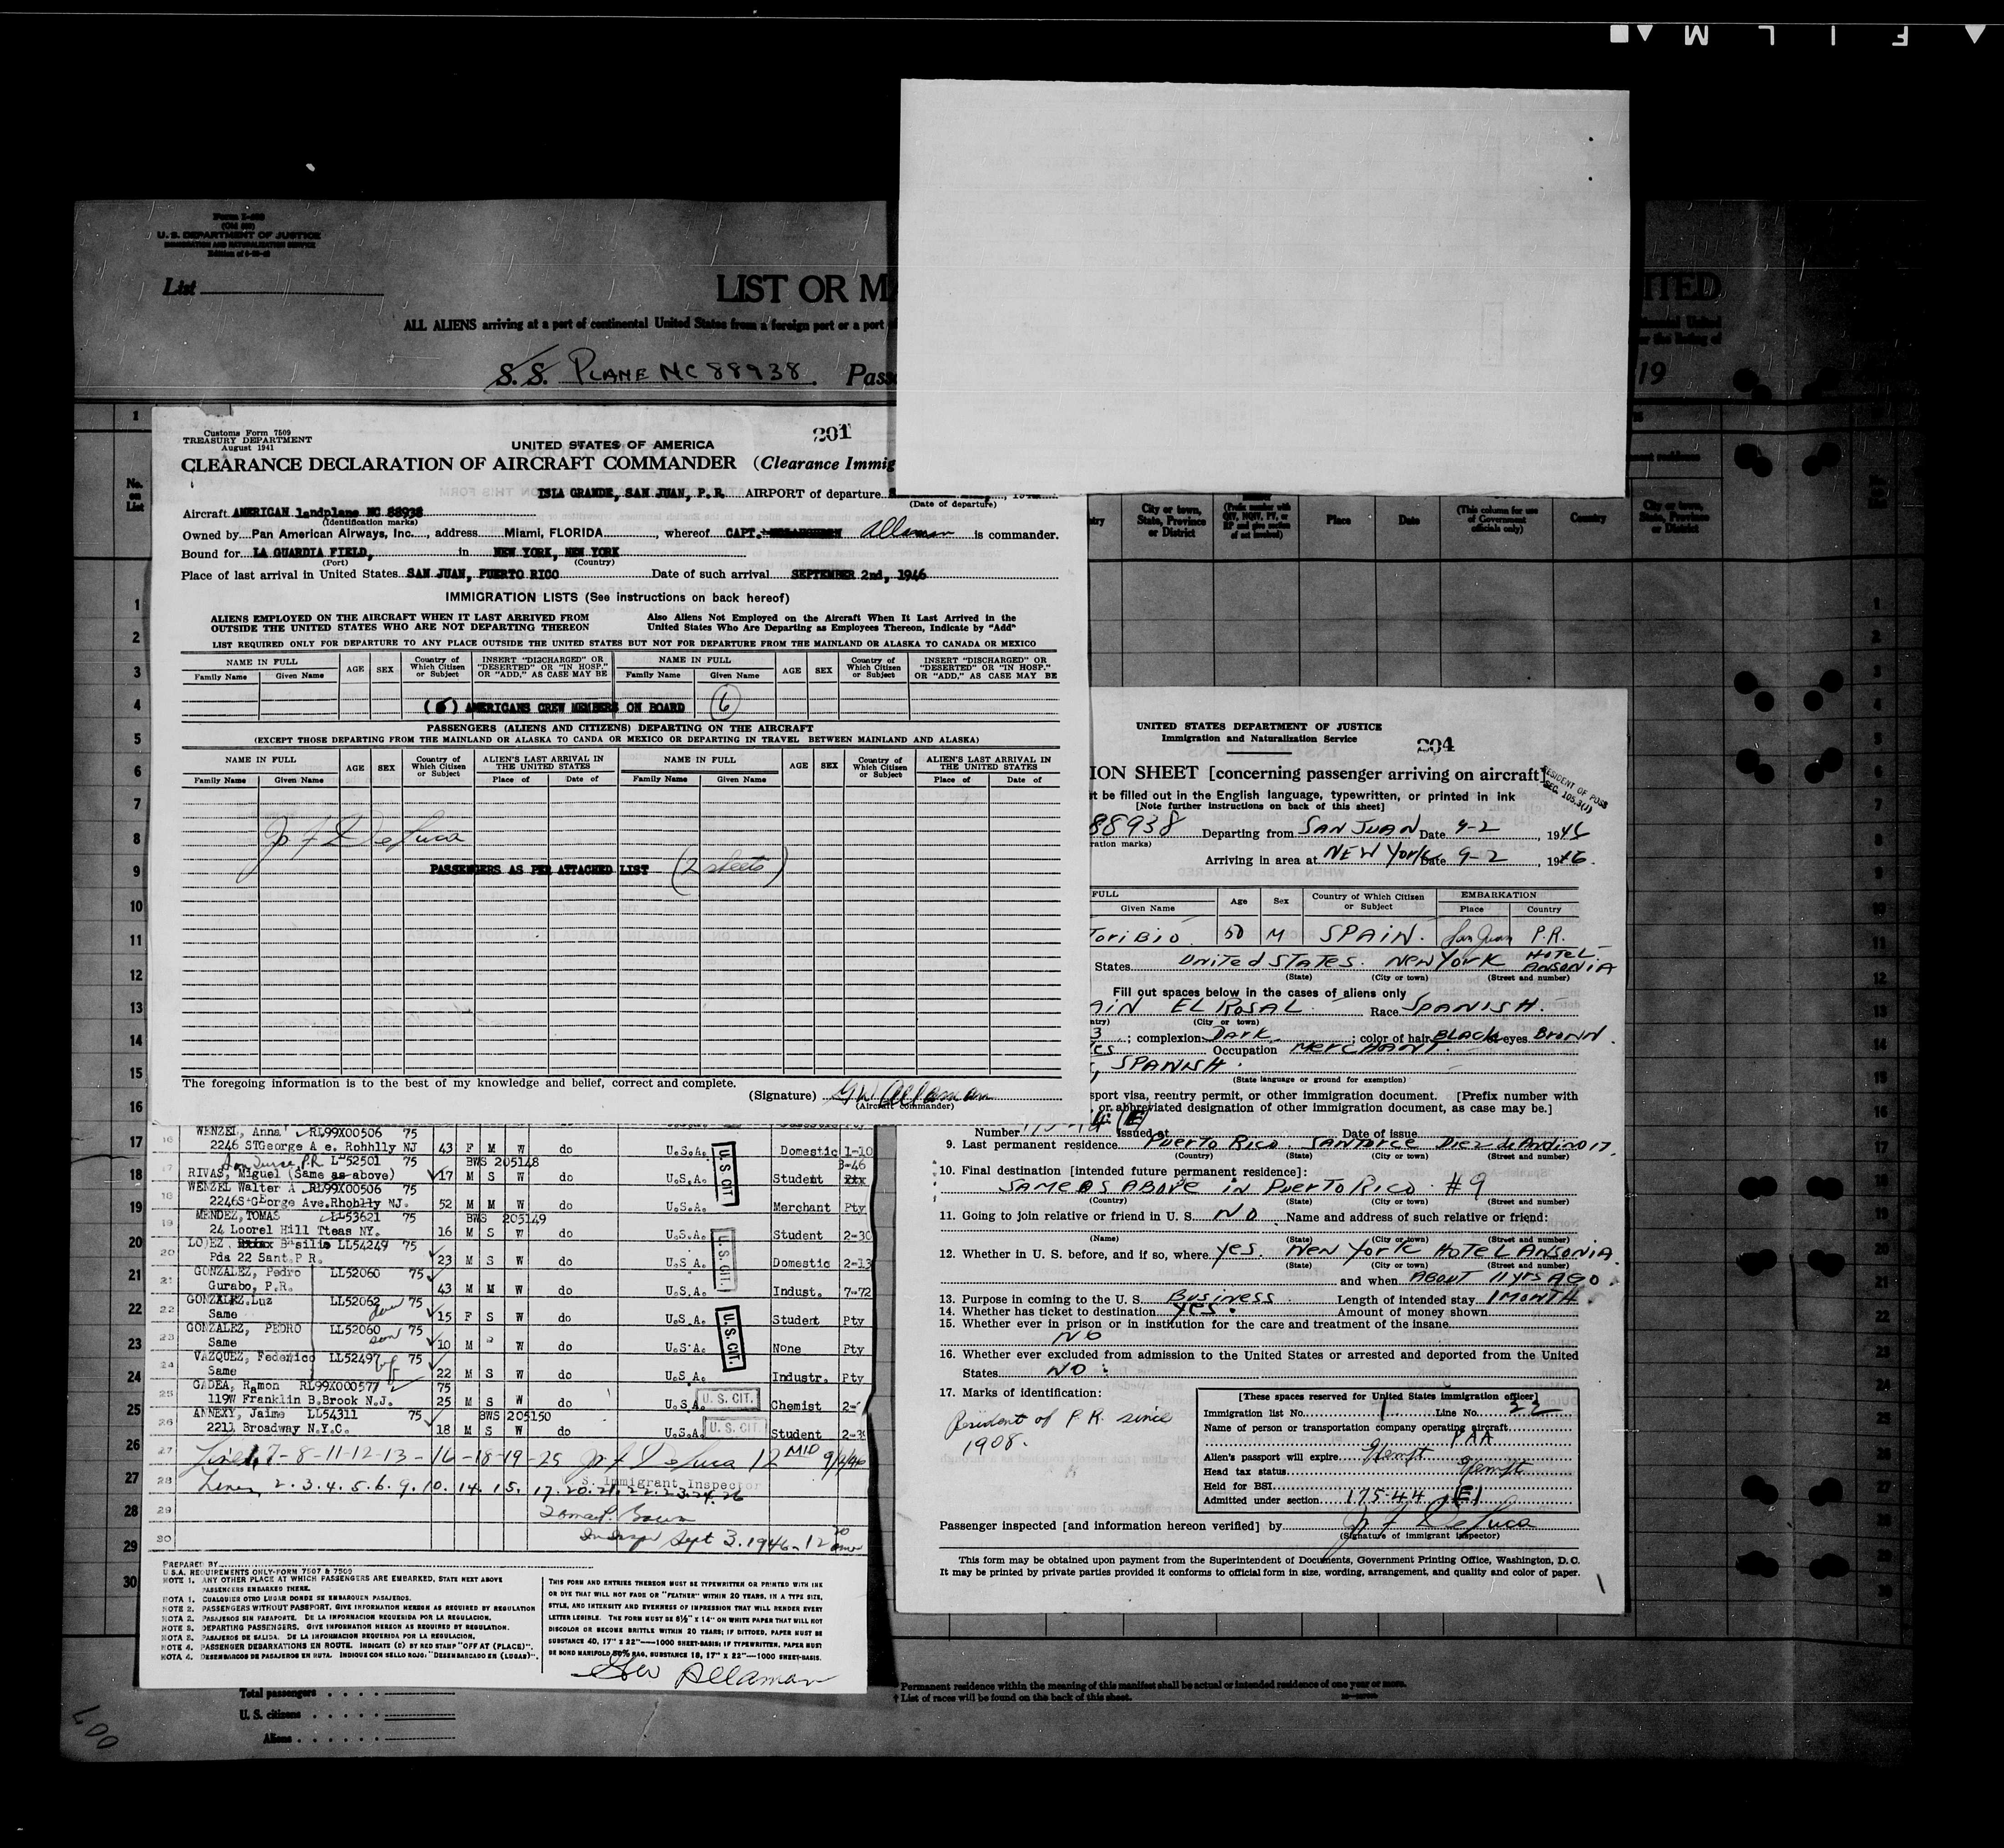 FILM
Form I-
U. S. DEPARTMENT OF JUSTICE
IMMIGRATION AND NATURALIZATION SERVICE
List
LIST OR M
ITED
ALL ALIENS arriving at a port of continental United States from a foreign port or a port
S.S. PLANE NC 88938. Pass
19
Customs Form 7509
TREASURY DEPARTMENT
August 1941
UNITED STATES OF AMERICA
201
CLEARANCE DECLARATION OF AIRCRAFT COMMANDER (Clearance Immig
ISLA GRANDE, SAN JUAN, P.R. AIRPORT of departure
(Date of departure)
Aircraft AMERICAN landplane NC 88938
(Identification marks)
Owned by Pan American Airways, Inc., address Miami, FLORIDA, whereof CAPT. Allaman is commander.
Bound for LA GUARDIA FIELD, in NEW YORK, NEW YORK
(Port) (Country)
Place of last arrival in United States SAN JUAN, PUERTO RICO Date of such arrival SEPTEMBER 2nd, 1946
IMMIGRATION LISTS (See instructions on back hereof)
ALIENS EMPLOYED ON THE AIRCRAFT WHEN IT LAST ARRIVED FROM OUTSIDE THE UNITED STATES WHO ARE NOT DEPARTING THEREON
Also Aliens Not Employed on the Aircraft When It Last Arrived in the United States Who Are Departing as Employees Thereon, Indicate by "Add"
LIST REQUIRED ONLY FOR DEPARTURE TO ANY PLACE OUTSIDE THE UNITED STATES BUT NOT FOR DEPARTURE FROM THE MAINLAND OR ALASKA TO CANADA OR MEXICO
NAME IN FULL AGE SEX Country of Which Citizen or Subject INSERT "DISCHARGED" OR "DESERTED" OR "IN HOSP." OR "ADD," AS CASE MAY BE NAME IN FULL AGE SEX Country of Which Citizen or Subject INSERT "DISCHARGED" OR "DESERTED" OR "IN HOSP." OR "ADD," AS CASE MAY BE
Family Name Given Name Family Name Given Name
(6) AMERICANS CREW MEMBERS ON BOARD 6
PASSENGERS (ALIENS AND CITIZENS) DEPARTING ON THE AIRCRAFT
(EXCEPT THOSE DEPARTING FROM THE MAINLAND OR ALASKA TO CANDA OR MEXICO OR DEPARTING IN TRAVEL BETWEEN MAINLAND AND ALASKA)
NAME IN FULL AGE SEX Country of Which Citizen or Subject ALIEN'S LAST ARRIVAL IN THE UNITED STATES NAME IN FULL AGE SEX Country of Which Citizen or Subject ALIEN'S LAST ARRIVAL IN THE UNITED STATES
Family Name Given Name Place of Date of Family Name Given Name Place of Date of
J F DeLuca
PASSENGERS AS PER ATTACHED LIST (2 sheets)
The foregoing information is to the best of my knowledge and belief, correct and complete.
(Signature) GW Allaman
(Aircraft commander)
WENZEL, Anna RL99X00506 75
2246 STGeorge A e. Rohhlly NJ 43 F M W do U.S.A. Domestic 1-10
San Juan P.R. L 52501 75 BWS 205148 3-46
RIVAS, Miguel (Same as above) 17 M S W do U.S.A. Student
WENZEL Walter A RL99X00506 75
2246S+GEorge Ave.Rhohlly NJ. 52 M M W do U.S.A. Merchant Pty
MENDEZ, TOMAS LL53621 75 BWS 205149
24 Loorel Hill Tteas NY. 16 M S W do U.S.A. Student 2-30
LOPEZ, Basilio LL54249 75
Pda 22 Sant.P R. 23 M S W do U.S A. Domestic 2-13
GONZALEZ, Pedro LL52060 75
Gurabo, P.R. 43 M M W do U.S.A. Indust. 7-72
GONZALEZ.Luz LL52062
Same 15 F S W do U.S.A. Student Pty
GONZALEZ, PEDRO LL52060 son 75
Same 10 M S W do U.S.A. None Pty
VAZQUEZ, Federico LL52497
Same 22 M S W do U.S.A. Industr. Pty
GADEA, Ramon RL99X000577 75
119W Franklin B.Brook N.J. 25 M S W do U.S.A. Chemist
ANNEXY, Jaime LL54311 75 BWS 205150
2211 Broadway N.Y.C. 18 M S W do U.S.A. Student
U.S. CIT.
U.S. CIT.
U.S. CIT.
U. S. CIT.
U. S. CIT.
Line 1, 7-8-11-12-13-16-18-19-25 J F DeLuca 12 MID 9/2/46
S. Immigrant Inspector
Lines 2.3.4.5.6.9.10.14.15.17.20.21.22.23.24.26
Sept 3. 1946 - 12
PREPARED BY
U.S.A. REQUIREMENTS ONLY-FORM 7507 & 7509
NOTE 1. ANY OTHER PLACE AT WHICH PASSENGERS ARE EMBARKED, STATE NEXT ABOVE PASSENGERS EMBARKED THERE.
NOTA 1. CUALQUIER OTRO LUGAR DONDE SE EMBARQUEN PASAJEROS.
NOTE 2. PASSENGERS WITHOUT PASSPORT. GIVE INFORMATION HEREON AS REQUIRED BY REGULATION
NOTA 2. PASAJEROS SIN PASAPORTE. DE LA INFORMACION REQUERIDA POR LA REGULACION.
NOTE 3. DEPARTING PASSENGERS. GIVE INFORMATION HEREON AS REQUIRED BY REGULATION.
NOTA 3. PASAJEROS DE SALIDA. DE LA INFORMACION REQUERIDA POR LA REGULACION.
NOTE 4. PASSENGER DEBARKATIONS EN ROUTE. INDICATE (D) BY RED STAMP "OFF AT (PLACE)".
NOTA 4. DESEMBARCOS DE PASAJEROS EN RUTA. INDIQUE CON SELLO ROJO: "DESEMBARCADO EN (LUGAR)".
THIS FORM AND ENTRIES THEREON MUST BE TYPEWRITTEN OR PRINTED WITH INK
OR DYE THAT WILL NOT FADE OR "FEATHER" WITHIN 20 YEARS, IN A TYPE SIZE,
STYLE, AND INTENSITY AND EVENNESS OF IMPRESSION THAT WILL RENDER EVERY
LETTER LEGIBLE. THE FORM MUST BE 8½" X 14" ON WHITE PAPER THAT WILL NOT
DISCOLOR OR BECOME BRITTLE WITHIN 20 YEARS; IF DITTOED, PAPER MUST BE
SUBSTANCE 40, 17" X 22"—1000 SHEET-BASIS; IF TYPEWRITTEN, PAPER MUST
BE BOND MANIFOLD 50% RAG, SUBSTANCE 18, 17" X 22"—1000 SHEET-BASIS.
Geo Allaman
Total passengers
U. S. citizens
Aliens
UNITED STATES DEPARTMENT OF JUSTICE
Immigration and Naturalization Service
204
ION SHEET [concerning passenger arriving on aircraft]
RESIDENT OF POSS
SEC. 105.3(1)
t be filled out in the English language, typewritten, or printed in ink
[Note further instructions on back of this sheet]
88938 Departing from SAN JUAN Date 9-2, 1946
ration marks)
Arriving in area at NEW York Date 9-2, 1946.
FULL Age Sex Country of Which Citizen or Subject EMBARKATION
Given Name Place Country
Toribio 50 M SPAIN. San Juan P.R.
States United STATES. NEW YORK HOTEL ANSONIA
(State) (City or town) (Street and number)
Fill out spaces below in the cases of aliens only
AIN EL ROSAL Race SPANISH.
ntry) (City or town)
3; complexion DARK; color of hair BLACK eyes BROWN
Occupation MERCHANT.
, SPANISH.
(State language or ground for exemption)
sport visa, reentry permit, or other immigration document. [Prefix number with
or abbreviated designation of other immigration document, as case may be.]
Number Issued at Date of issue
9. Last permanent residence Puerto Rico SANTURCE Diez de Andino 17.
(Country) (State) (City or town) (Street and number)
10. Final destination [intended future permanent residence]:
SAME AS ABOVE in PUERTO RICO #9
(Country) (State) (City or town) (Street and number)
11. Going to join relative or friend in U. S. NO Name and address of such relative or friend:
(Name) (State) (City or town) (Street and number)
12. Whether in U. S. before, and if so, where yes. NEW YORK HOTEL ANSONIA.
(State) (City or town) (Street and number)
and when ABOUT 11 yrs AGO
13. Purpose in coming to the U. S. Business Length of intended stay 1 MONTH.
14. Whether has ticket to destination yes. Amount of money shown
15. Whether ever in prison or in institution for the care and treatment of the insane
NO
16. Whether ever excluded from admission to the United States or arrested and deported from the United
States NO
17. Marks of identification:
Resident of P.R. since
1908.
[These spaces reserved for United States immigration officer]
Immigration list No. 1 Line No. 22
Name of person or transportation company operating aircraft
PAA
Alien's passport will expire Exempt
Head tax status Exempt
Held for BSI
Admitted under section 175.44 (E)
Passenger inspected [and information hereon verified] by J F DeLuca
(Signature of immigrant inspector)
This form may be obtained upon payment from the Superintendent of Documents, Government Printing Office, Washington, D. C.
It may be printed by private parties provided it conforms to official form in size, wording, arrangement, and quality and color of paper.
Permanent residence within the meaning of this manifest shall be actual or intended residence of one year or more.
† List of races will be found on the back of this sheet.